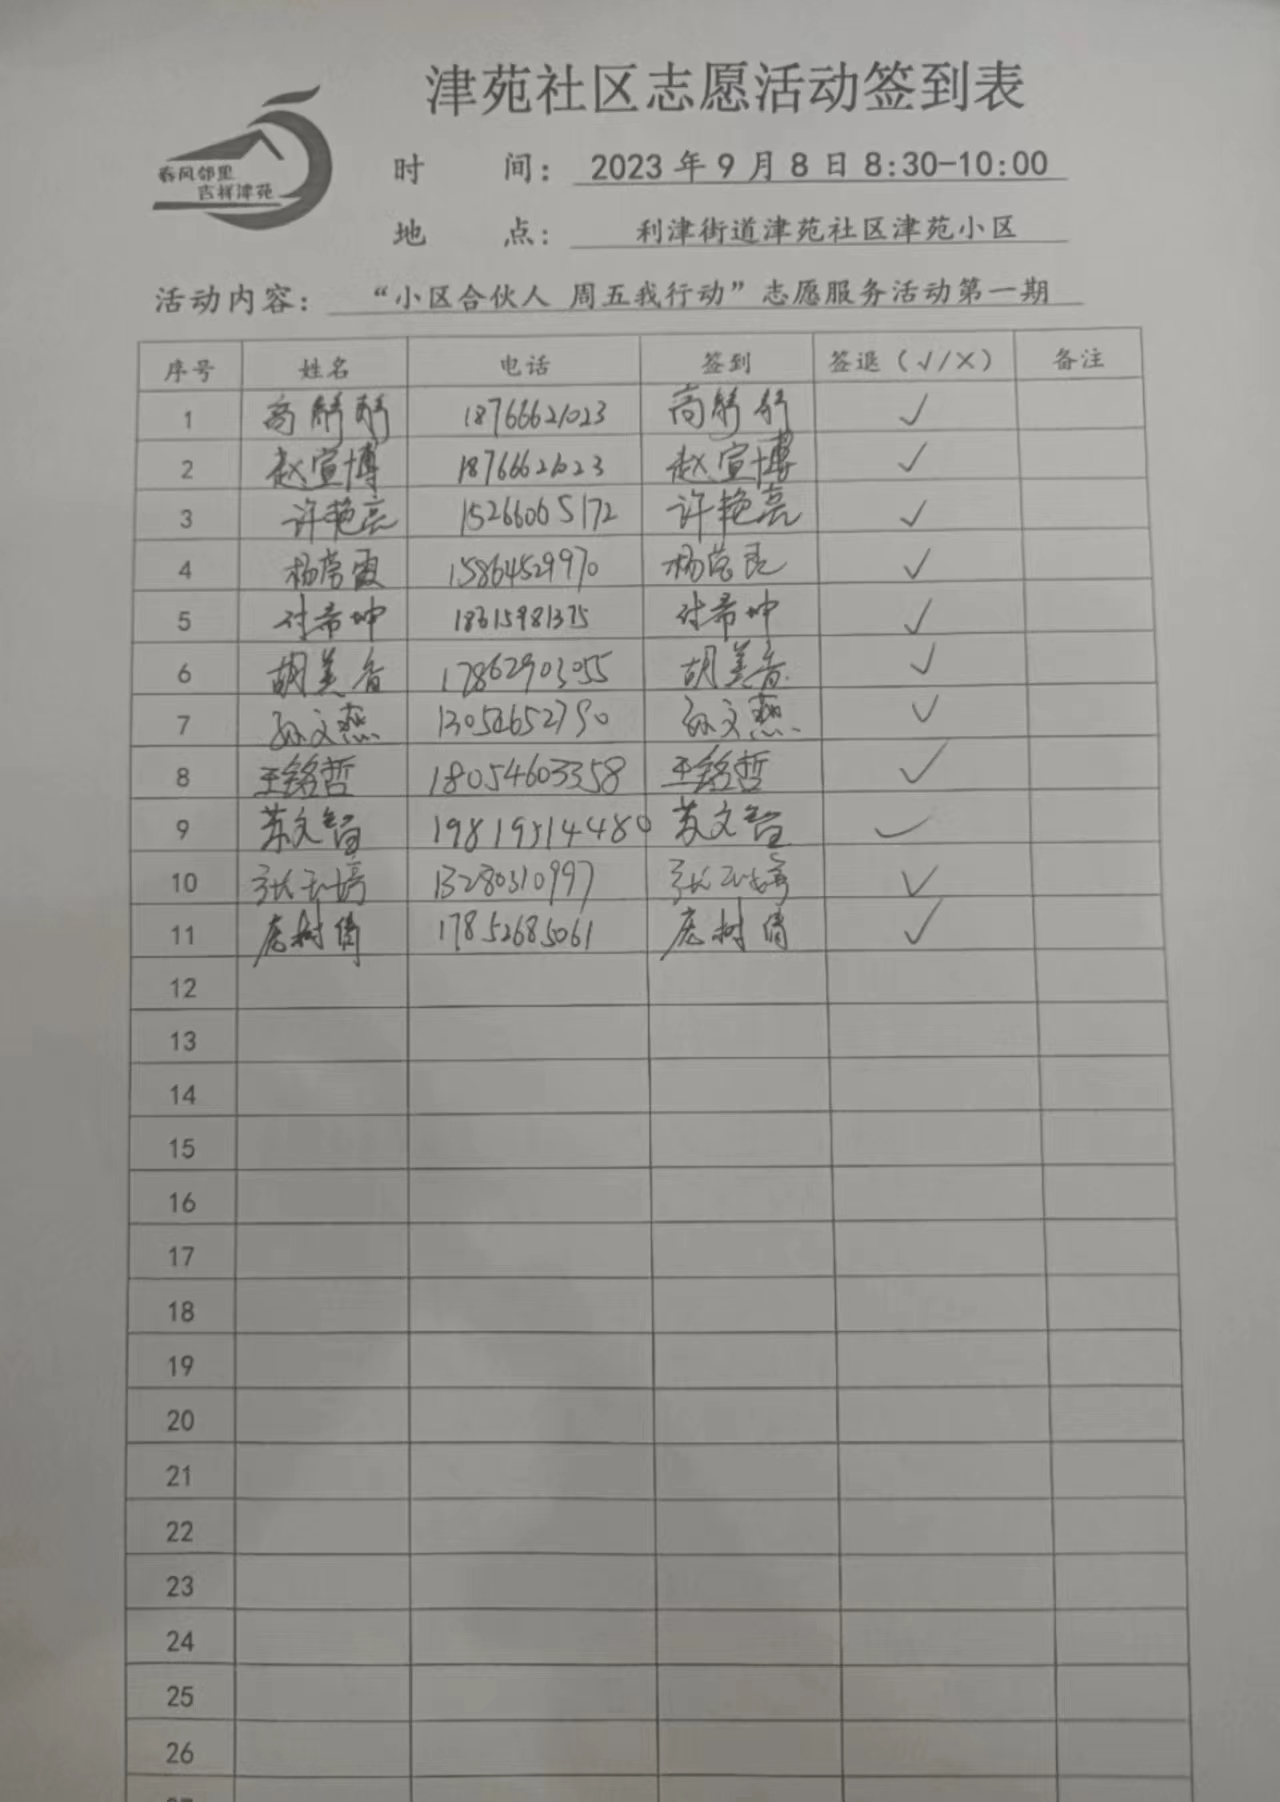 津苑社区志愿活动签到表
春风邻里
吉祥津苑
时 间: 2023年9月8日8:30-10:00
地 点: 利津街道津苑社区津苑小区
活动内容: “小区合伙人 周五我行动”志愿服务活动第一期
序号 姓名 电话 签到 签退(√/×) 备注
1 高 18766621023 高 √
2 赵宣博 18766621023 赵宣博 √
3 许艳亮 15266065172 许艳亮 √
4 杨 霞 15864529970 杨 √
5 付希坤 18315981375 付希坤 √
6 胡美香 17862903055 胡美香 √
7 孙文燕 13054652790 孙文燕 √
8 王铭哲 18054603358 王铭哲 √
9 苏文 19819514480 苏文 √
10 张玉婷 13280310997 张玉婷 √
11 树倩 17852685061 树倩 √
12
13
14
15
16
17
18
19
20
21
22
23
24
25
26